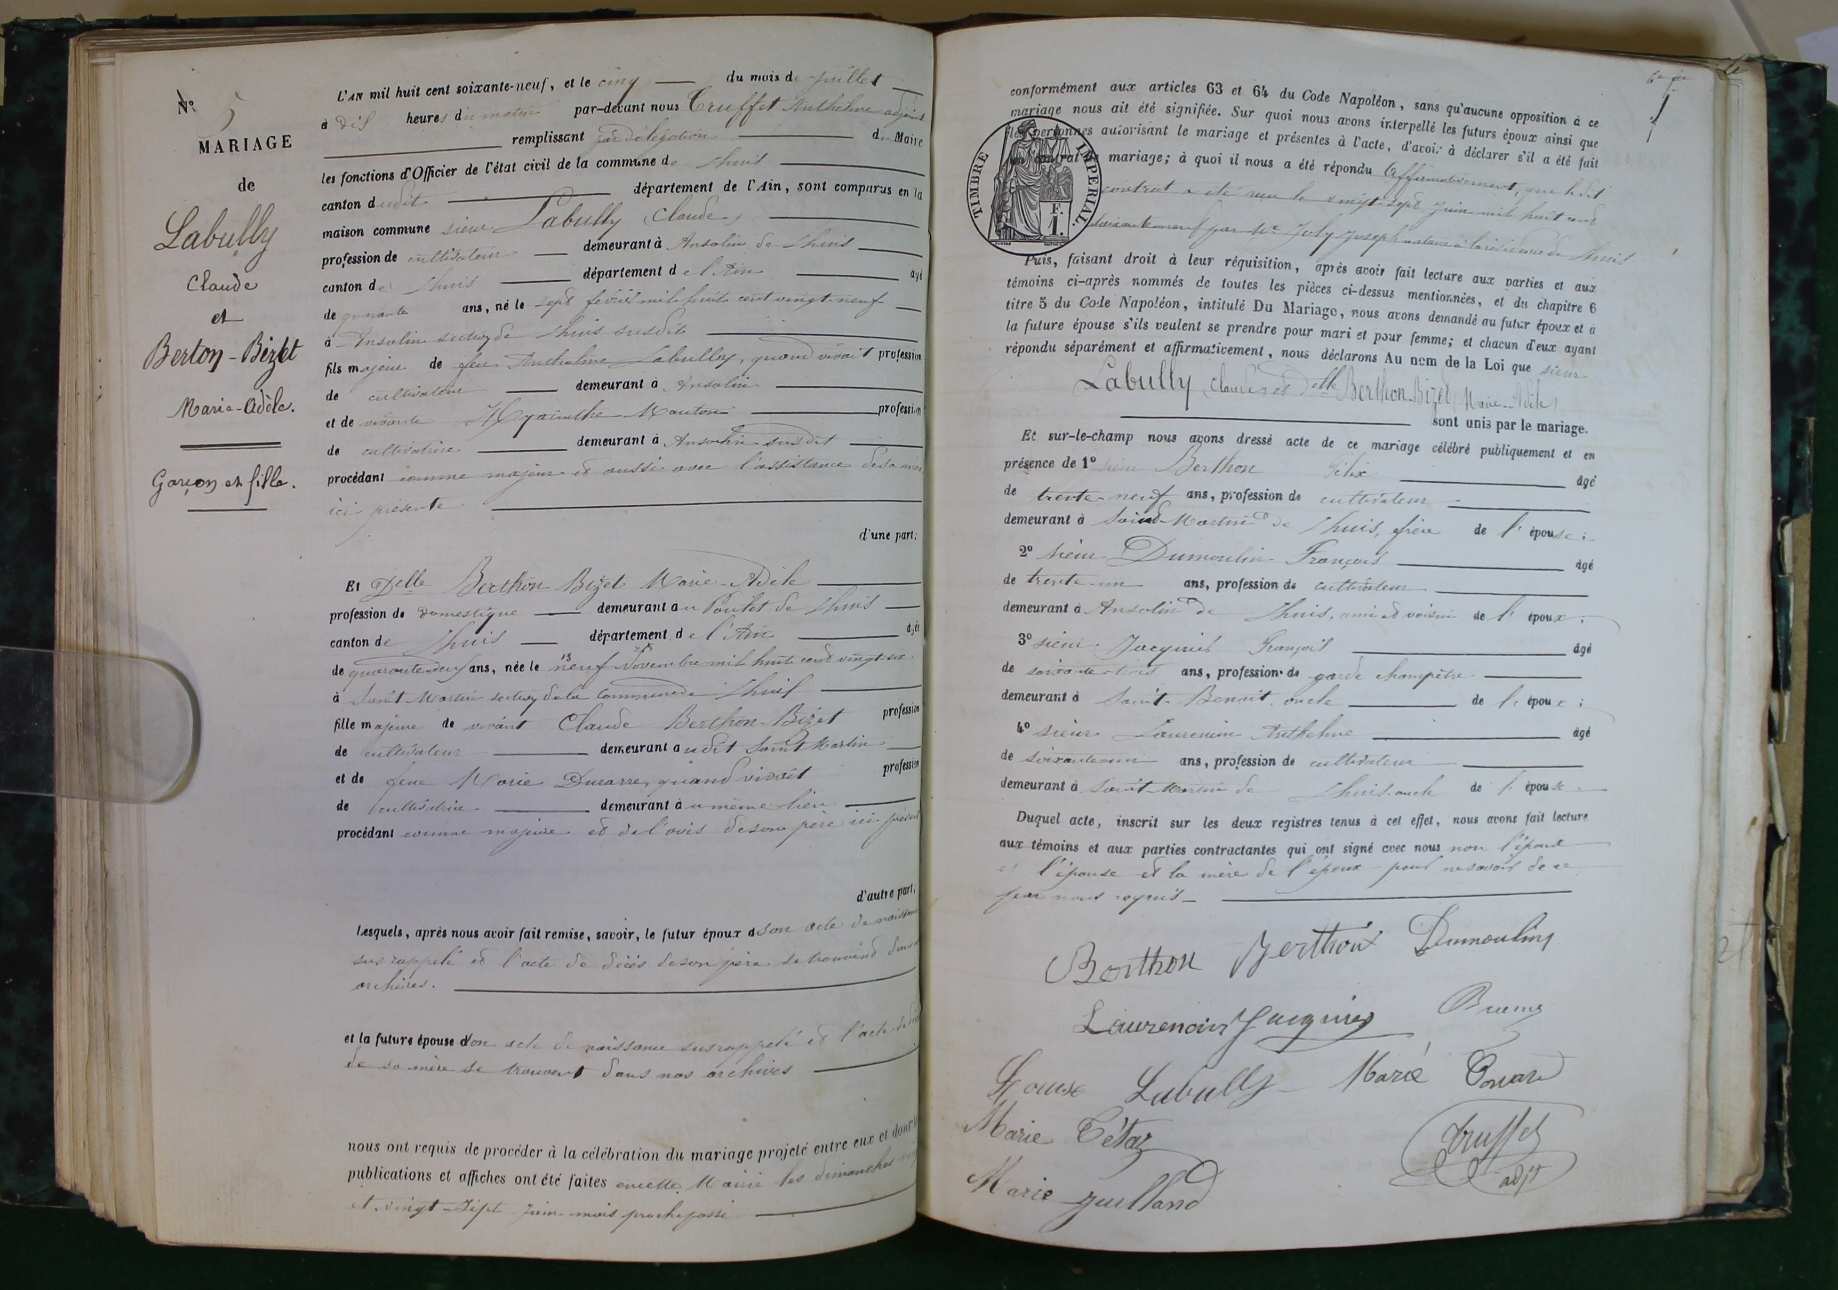 N° 5
MARIAGE
de
Labully
Claude
et
Berton-Bizet
Marie-Adèle.
Garçon et fille.
L'AN mil huit cent soixante-neuf, et le cinq du mois de juillet
à dix heures du matin par-devant nous Truffet Anthelme adjoint
remplissant par délégation du Maire
les fonctions d'Officier de l'état civil de la commune de Lhuis
canton dudit département de l'Ain, sont comparus en la
maison commune sieur Labully Claude,
profession de cultivateur demeurant à Ansolin de Lhuis
canton de Lhuis département de l'Ain âgé
de quarante ans, né le sept février mil huit cent vingt-neuf
à Ansolin section de Lhuis susdit
fils majeur de feu Anthelme Labully, quand vivait profession
de cultivateur demeurant à Ansolin
et de vivante Hyacinthe Mouton profession
de cultivatrice demeurant à Ansolin susdit
procédant comme majeur et aussi avec l'assistance de sa mère
ici présente
d'une part;
Et Delle Berthon-Bizet Marie-Adèle
profession de domestique demeurant au Poulet de Lhuis
canton de Lhuis département de l'Ain âgée
de quarante-deux ans, née le neuf novembre mil huit cent vingt-six
à Saint Martin section de la commune de Lhuis
fille majeure de vivant Claude Berthon-Bizet profession
de cultivateur demeurant audit Saint Martin
et de feue Marie Ducarre, quand vivait profession
de cultivatrice demeurant au même lieu
procédant comme majeure et de l'avis de son père ici présent
d'autre part,
Lesquels, après nous avoir fait remise, savoir, le futur époux de son acte de naissance
susrappelé et l'acte de décès de son père se trouvent dans nos
archives.
et la future épouse son acte de naissance susrappelé et l'acte de décès
de sa mère se trouvent dans nos archives
nous ont requis de procéder à la célébration du mariage projeté entre eux et dont les
publications et affiches ont été faites en cette Mairie les dimanches vingt
et vingt-sept juin mois proche passé
conformément aux articles 63 et 64 du Code Napoléon, sans qu'aucune opposition à ce
mariage nous ait été signifiée. Sur quoi nous avons interpellé les futurs époux ainsi que
les personnes autorisant le mariage et présentes à l'acte, d'avoir à déclarer s'il a été fait
un contrat de mariage; à quoi il nous a été répondu affirmativement, que ledit
contrat a été reçu le vingt-sept juin mil huit cent
soixante-neuf par Me Joly Joseph notaire à la résidence de Lhuis
TIMBRE IMPERIAL.
F.
1.
Puis, faisant droit à leur réquisition, après avoir fait lecture aux parties et aux
témoins ci-après nommés de toutes les pièces ci-dessus mentionnées, et du chapitre 6
titre 5 du Code Napoléon, intitulé Du Mariage, nous avons demandé au futur époux et à
la future épouse s'ils veulent se prendre pour mari et pour femme; et chacun d'eux ayant
répondu séparément et affirmativement, nous déclarons Au nom de la Loi que sieur
Labully Claude et Delle Berthon-Bizet Marie-Adèle
sont unis par le mariage.
Et sur-le-champ nous avons dressé acte de ce mariage célébré publiquement et en
présence de 1° sieur Berthon Félix âgé
de trente-neuf ans, profession de cultivateur
demeurant à Saint-Martin de Lhuis, frère de l'épouse;
2° sieur Dumoulin François âgé
de trente-un ans, profession de cultivateur
demeurant à Ansolin de Lhuis, ami et voisin de l'époux;
3° sieur Jacquier François âgé
de soixante-trois ans, profession de garde champêtre
demeurant à Saint-Benoit, oncle de l'époux;
4° sieur Laurencin Anthelme âgé
de soixante-un ans, profession de cultivateur
demeurant à Saint-Martin de Lhuis, oncle de l'épouse
Duquel acte, inscrit sur les deux registres tenus à cet effet, nous avons fait lecture
aux témoins et aux parties contractantes qui ont signé avec nous non l'époux
et l'épouse et la mère de l'époux pour ne savoir de ce
par nous requis
Berthon Berthon Dumoulin
Laurencin Jacquier
Louise Labully Marie
Marie Tétaz
Truffet
adjt
Marie Guilland